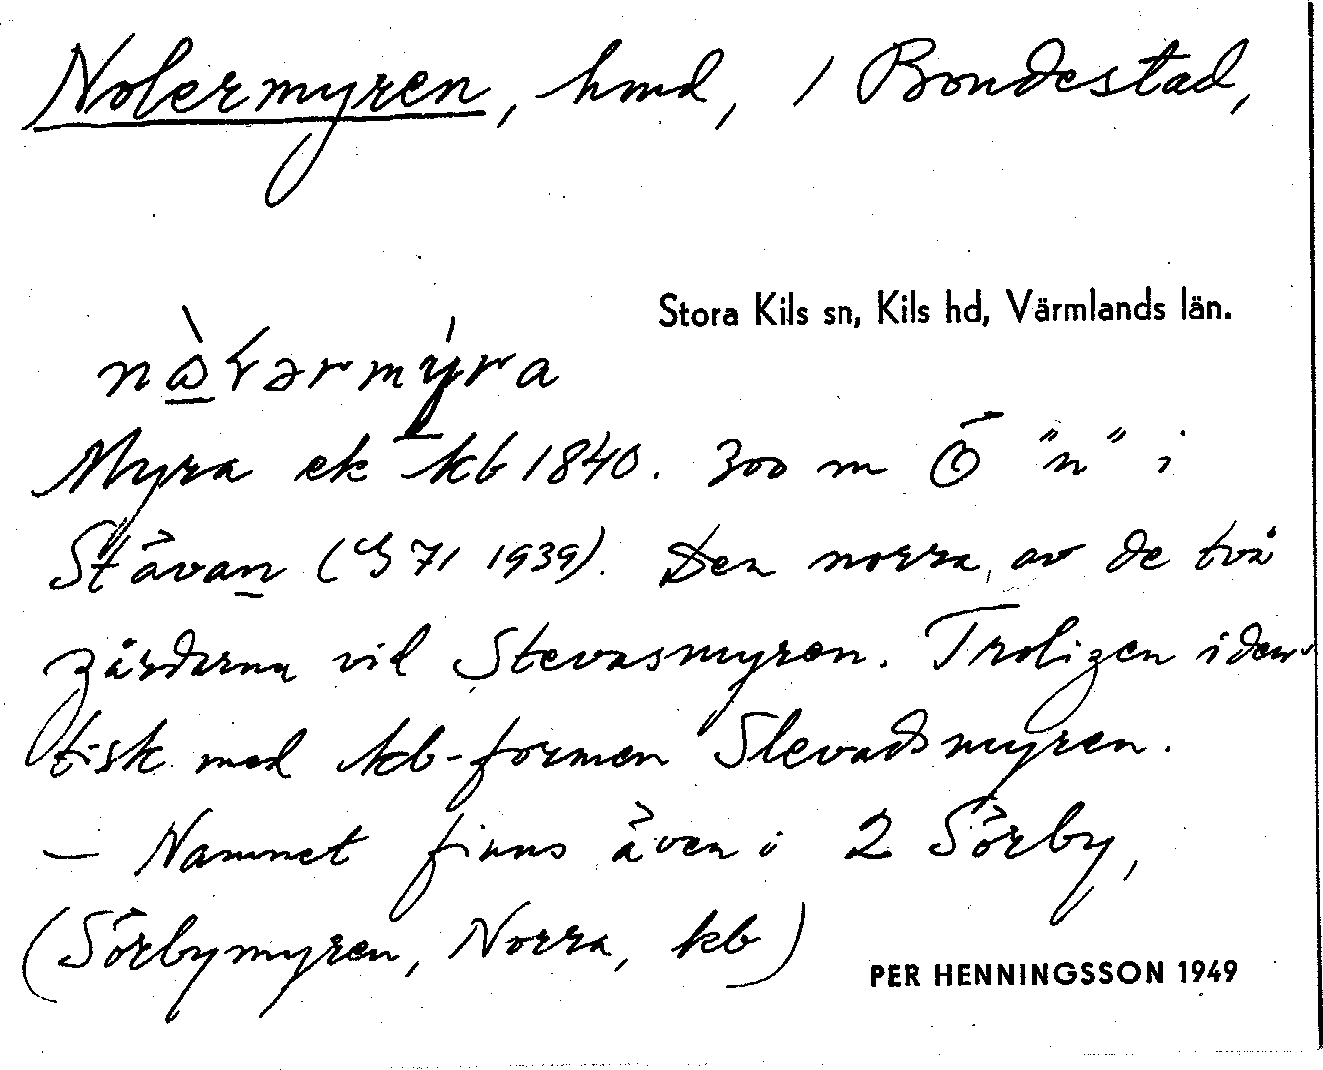 Nolermyren, hmd, 1 Bondestad,
Stora Kils sn, Kils hd, Värmlands län.
Myra ek kb 1840. 300 m Ö "n" i
Stävan (G 71 1939). Den norra av de två
gärderna vid Stevasmyren. Troligen iden-
tisk med kb-formen Slevadsmyren.
— Namnet finns även i 2 Sörby,
(Sörbymyren, Norra, kb)
PER HENNINGSSON 1949